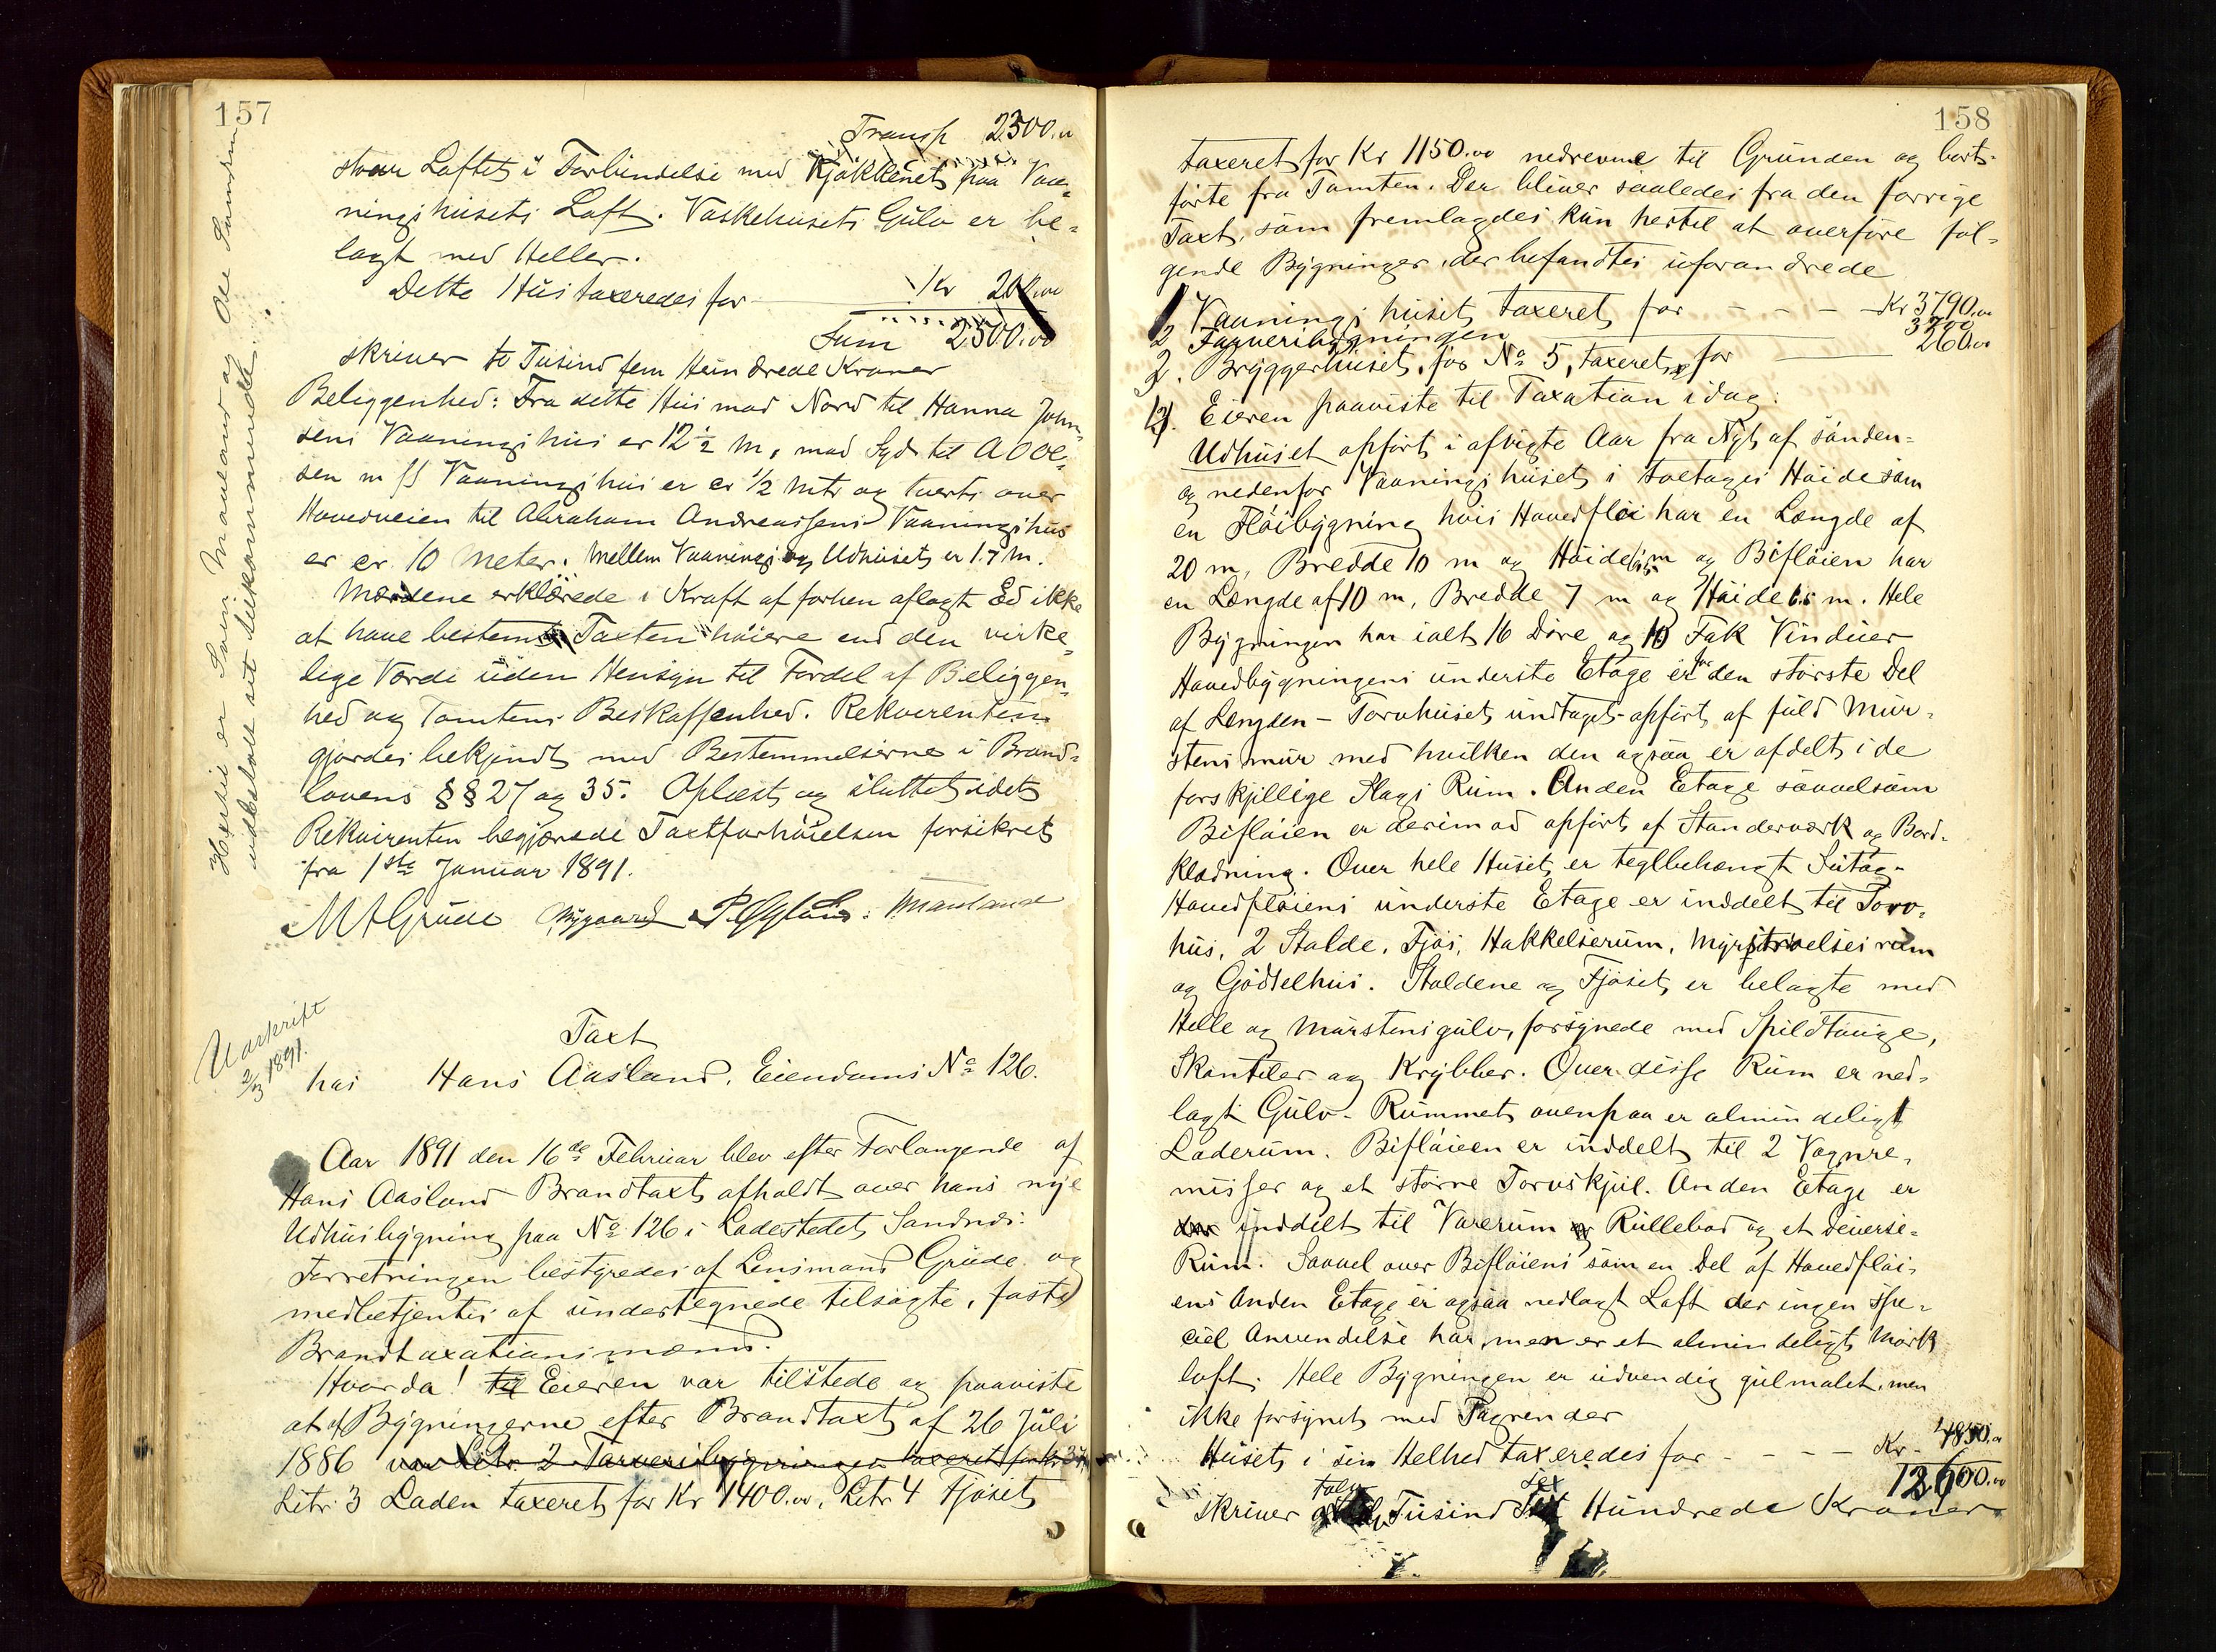 157
Transp 2300.00
staar Loftet i Forbindelse med Kjøkkenet paa Vaa-
ningshusets Loft. Vaskehusets Gulv er be-
lagt med Heller.
Dette Hus taxeredes for Kr 200.00
Sum 2500.00
skriver to Tusind fem Hundrede Kroner
Beliggenhed: Fra dette Hus mod Nord til Hanna John-
sens Vaaningshus er 12 1/2 m, mod Syd til A O Ol-
sen m fl Vaaningshus er cr 1/2 mtr og tverts over
Hovedveien til Abraham Andreassens Vaaningshus
er cr. 10 meter. Mellem Vaanings og Udhuset er 1.7 m.
Mændene erklærede i Kraft af forhen aflagt Ed ikke
at have bestemt Taxten høiere end den virke-
lige Værdi uden Hensyn til Fordel af Beliggen-
hed og Tomtens Beskaffenhed. Rekvirenten
gjordes bekjendt med Bestemmelserne i Brand-
lovens §§ 27 og 35. Oplæst og sluttet idet
Rekvirenten begjærede Taxtforhøielsen forsikret
fra 1ste Januar 1891.
M A Grude Nygaard
Udskrift
2/3 1891.
Taxt
hos Hans Aasland, Eiendoms No 126.
Aar 1891 den 16de Februar blev efter Forlangende af
Hans Aasland Brandtaxt afholdt over hans nye
Udhusbygning paa No 126 i Ladestedet Sandnæs.
Forretningen bestyredes af Lensmand Grude og
medbetjentes af undertegnede tilsagte, faste
Brandtaxationsmænd.
Hvorda! til Eieren var tilstede og paaviste
at af Bygningerne efter Brandtaxt af 26 Juli
1886 var Litr. 2 Farveribygningen taxeret for Kr 32
Litr 3 Laden taxeret for Kr 1400.00, Litr 4 Fjøset
158
taxeret for Kr 1150.00 nedrevne til Grunden og bort-
førte fra Tomten. Der bliver saaledes fra den forrige
Taxt, som fremlagdes kun hertil at overføre føl-
gende Bygninger, der befandtes uforandrede
1 Vaaningshuset taxeret for - - - Kr 3790.00
2 Farveribygningen 3200
3. Bryggerhuset, før No 5, taxeret for 260.00
Eieren paaviste til Taxation idag:
Udhuset opført i afvigte Aar fra Nyt af sønden-
og nedenfor Vaaningshuset i toetages Høide som
en Fløibygning hvis Hovedfløi har en Længde af
20 m, Bredde 10 m og Høide m og Bifløien har
en Længde af 10 m, Bredde 7 m og Høide 6.5 m. Hele
Bygningen har ialt 16 Døre og 10 Fak Vinduer
Hovedbygningens underste Etage er for den største Del
af Længden - Torvhuset undtaget - opført af fuld Mur-
stensmur med hvilken den ogsaa er afdelt i de
forskjellige Slags Rum. Anden Etage saavelsom
Bifløien er derimod opført af Standerværk og Bord-
klædning. Over hele Huset er teglbehængt Sutag-
Hovedfløiens underste Etage er inddelt til Torv-
hus, 2 Stalde, Fjøs, Hakkelserum, Myrstrøelsesrum
og Gjødselhus. Staldene og Fjøset er belagte med
Helle og Murstensgulv, forsynede med Spildtauge,
Skantiler og Krybber. Over disse Rum er ned-
lagt Gulv - Rummet ovenpaa er almindeligt
Laderum. Bifløien er inddelt til 2 Vognre-
misser og et større Torvskjul. Anden Etage er
inddelt til Varerum og Rullebod og et deverse-
Rum. Saavel over Bifløiens som en Del af Hovedfløi-
ens Anden Etage er ogsaa nedlagt Loft der ingen spe-
ciel Anvendelse har, men er et almindeligt Mørk
loft. Hele Bygningen er udvendig gulmalet, men
ikke forsynet med Tagrender
Huset i sin Helhed taxeredes for - - - Kr.
12600.00
skriver tolv Tusind sex Hundrede Kroner